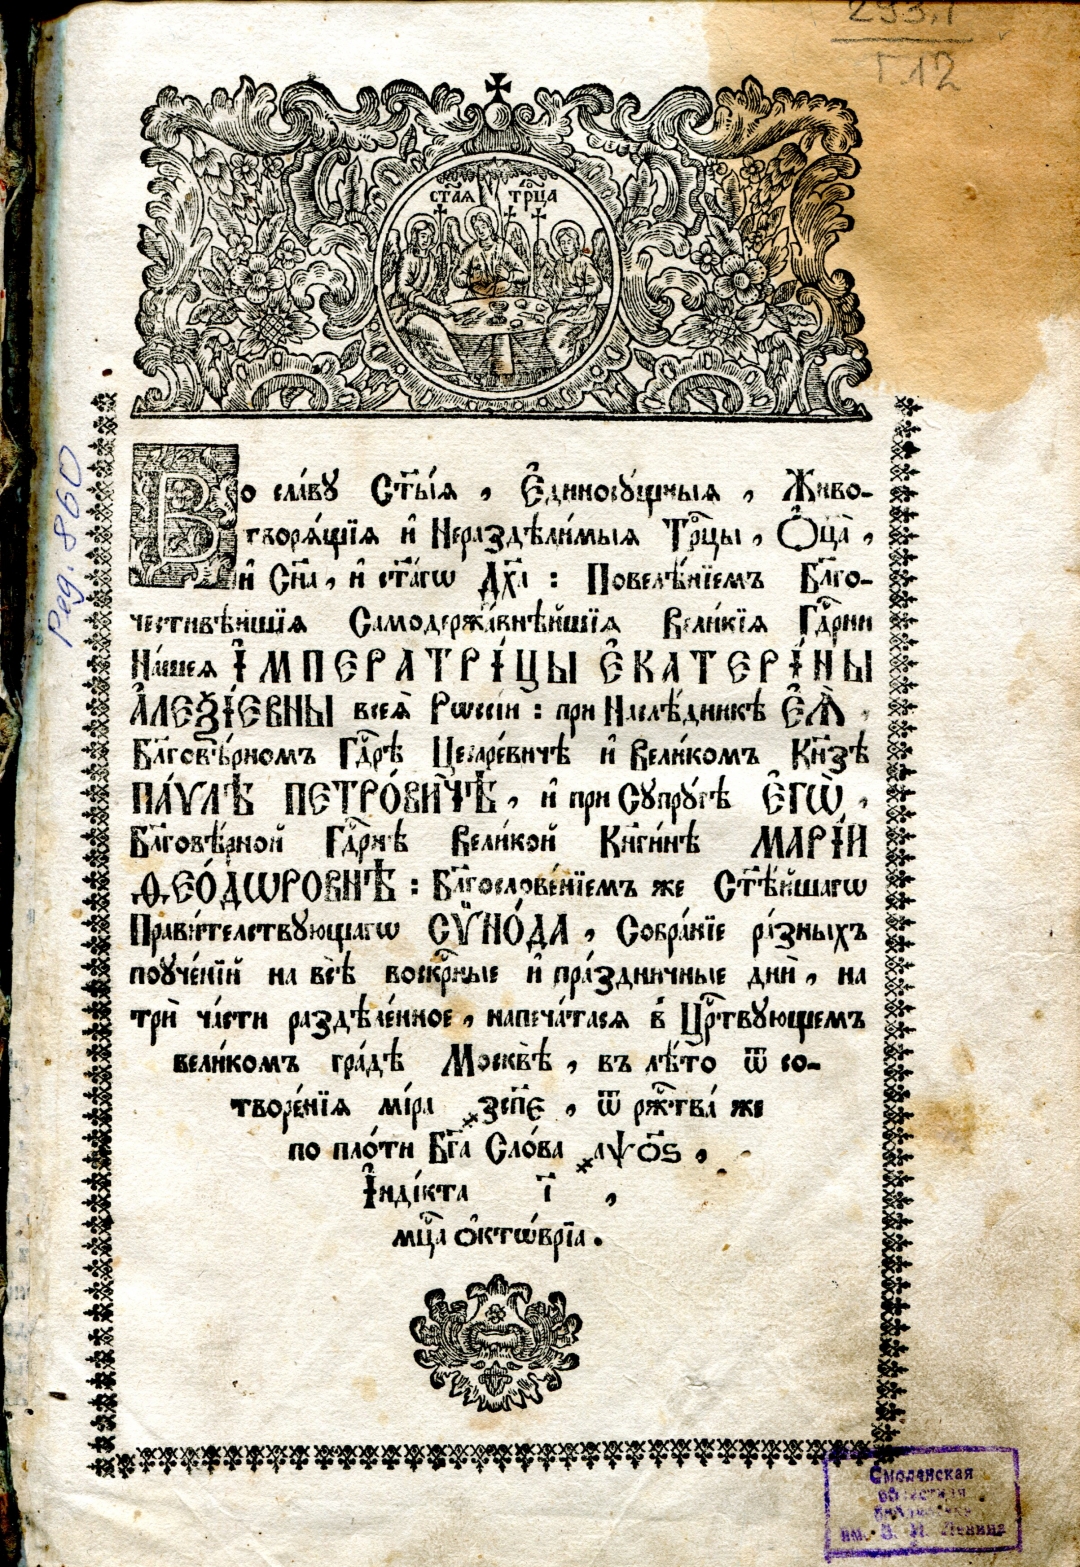 293.1
Г12
СТ҃АѦ ТРⷪ҇ЦА
Рег. 860
Во сла́вꙋ Ст҃ы́ѧ, Є҆диносꙋ́щныѧ, Живо-
творѧ́щїѧ и҆ Нераздѣли́мыѧ Трⷪ҇цы, Ѻ҆ц҃а̀,
и҆ Сн҃а, и҆ ст҃а́гѡ Дх҃а: Повелѣ́нїемъ Бл҃го-
честивѣ́йшїѧ Самодержа́внѣйшїѧ Вели́кїѧ Гдⷭ҇рни
На́шеѧ І҆МПЕРАТРІ́ЦЫ Е҆КАТЕРІ́НЫ
А҆ЛЕѮІ́ЕВНЫ всеѧ̀ Рѡссі́и: при Наслѣ́дникѣ Е҆Ѧ̀,
Бл҃говѣ́рномъ Гдⷭ҇рѣ Цесаре́вичѣ и҆ Вели́комъ Кн҃зѣ
ПА́ѴЛѢ ПЕТРО́ВИЧѢ, и҆ при Сꙋпрꙋ́гѣ Е҆ГѠ̀,
Бл҃говѣ́рной Гдⷭ҇рнѣ Вели́кой Кн҃ги́нѣ МАРІ́И
ѲЕО́ДѠРОВНѢ: Бл҃гослове́нїемъ же Ст҃ѣ́йшагѡ
Прави́телствꙋющагѡ СѴНО́ДА, Собра́нїе ра́зныхъ
поꙋче́нїй на всѣ̀ воскрⷭ҇ные и҆ пра́здничные дни̑, на
трѝ ча́сти раздѣле́нное, напеча́тасѧ в Црⷭ҇твꙋющемъ
вели́комъ гра́дѣ Москвѣ̀, въ лѣ́то ѿ со-
творе́нїѧ мі́ра ҂зспе҃, ѿ ржⷭ҇тва́ же
по пло́ти Бг҃а Сло́ва ҂аѱо҃ѕ,
І҆нді́кта і҃,
мцⷭ҇а ѻ҆ктѡ́врїа.
Смоленская
областная
библиотека
им. В. И. Ленина